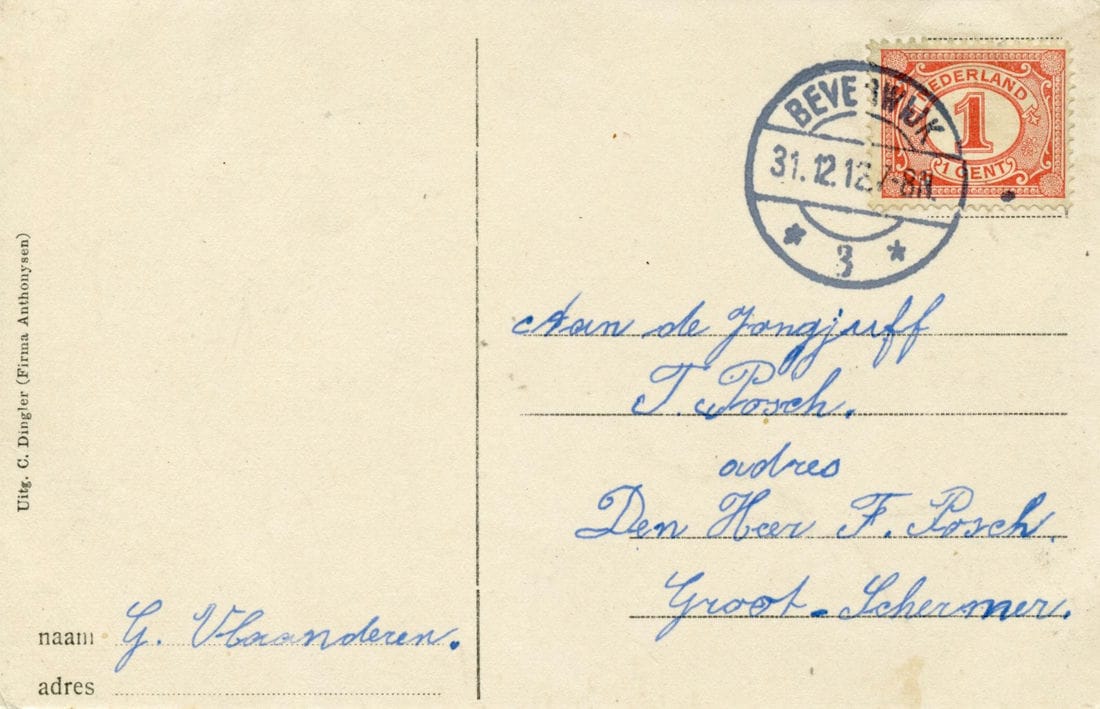 NEDERLAND
1
1 CENT
BEVERWIJK
31.12.12.7-8N.
3
Aan de Jongjuff
T. Posch.
adres
Den Heer F. Posch.
Groot-Schermer.
Uitg. C. Dingler (Firma Anthonysen)
naam G. Vlaanderen.
adres